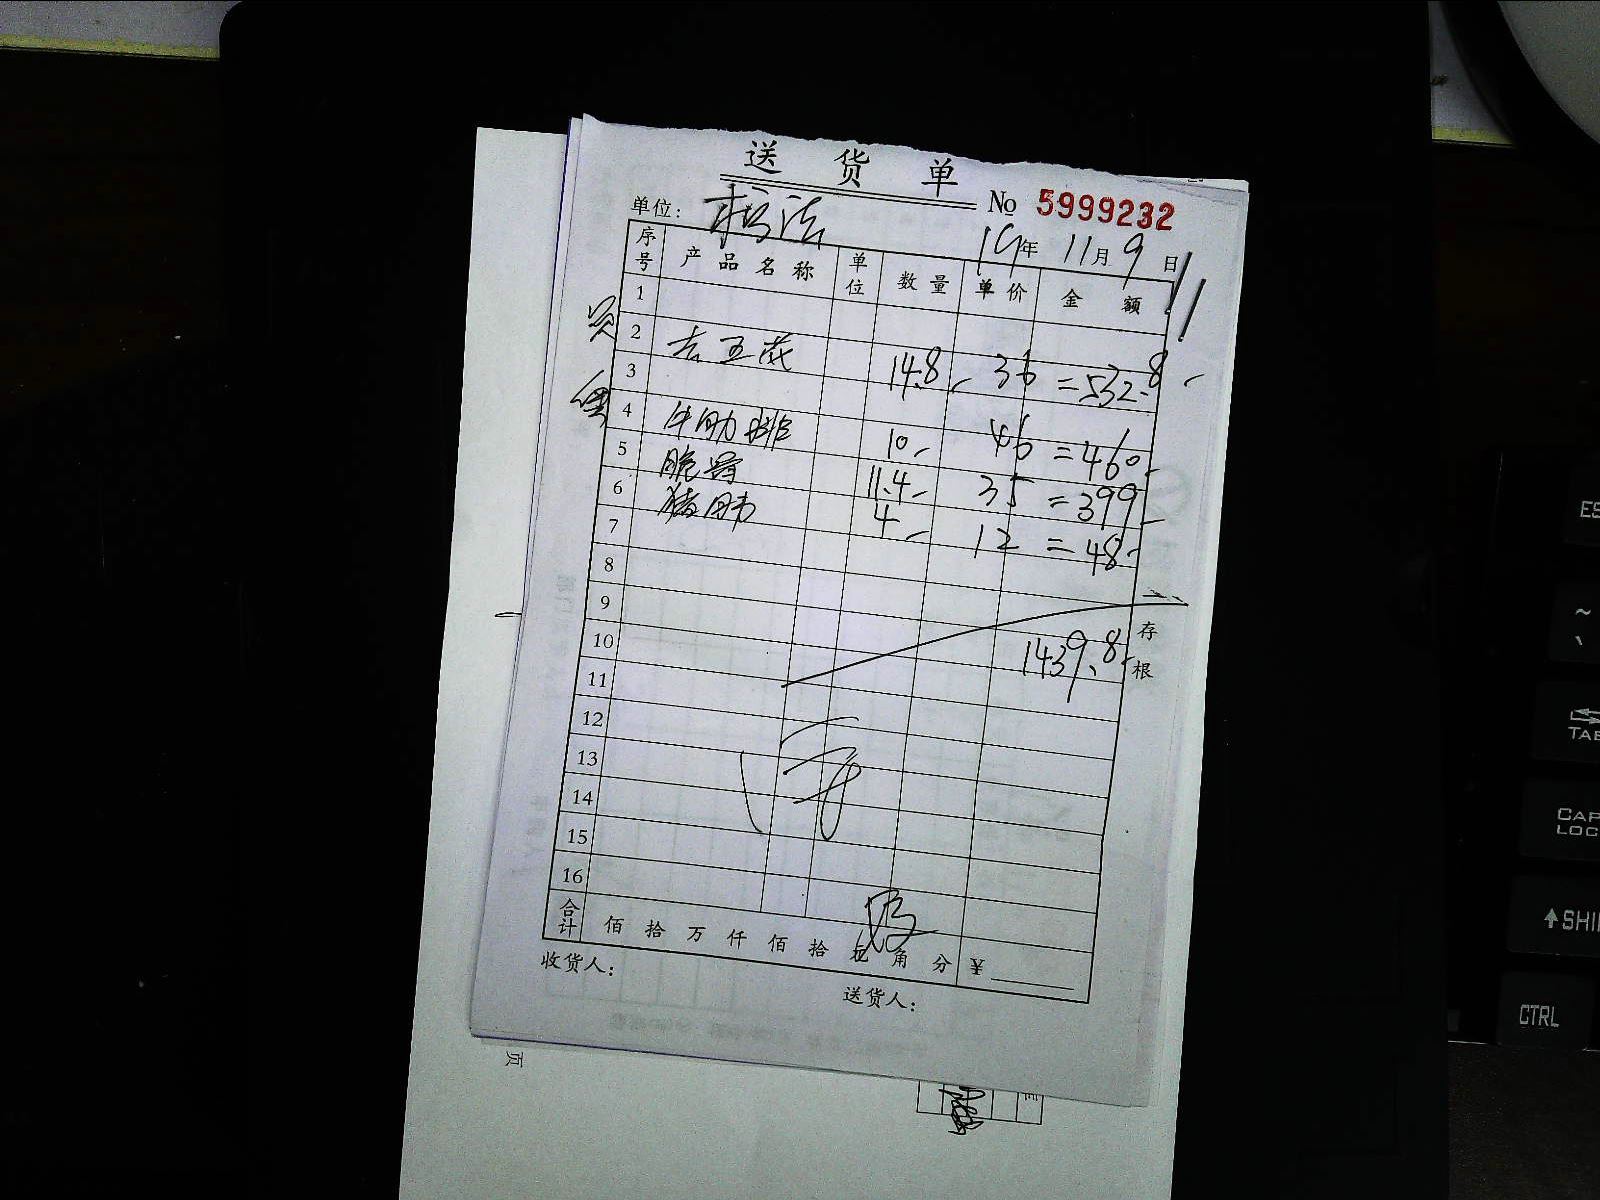 送货单
No 5999232
单位:
19年 11月 9日
序号 产品名称 单位 数量 单价 金额
1
2
3 去五花 14.8 36 =532.8
4
5 牛肋排 10 46 =460
6 脆骨 11.4 35 =399
7 猪肺 4 12 =48
8
9
10 1439.8
11
12
13
14
15
16
存根
合计 佰 拾 万 仟 佰 拾 元 角 分 ¥
收货人:
送货人:
页
ES
~
TAB
CAP
LOC
SHI
CTRL